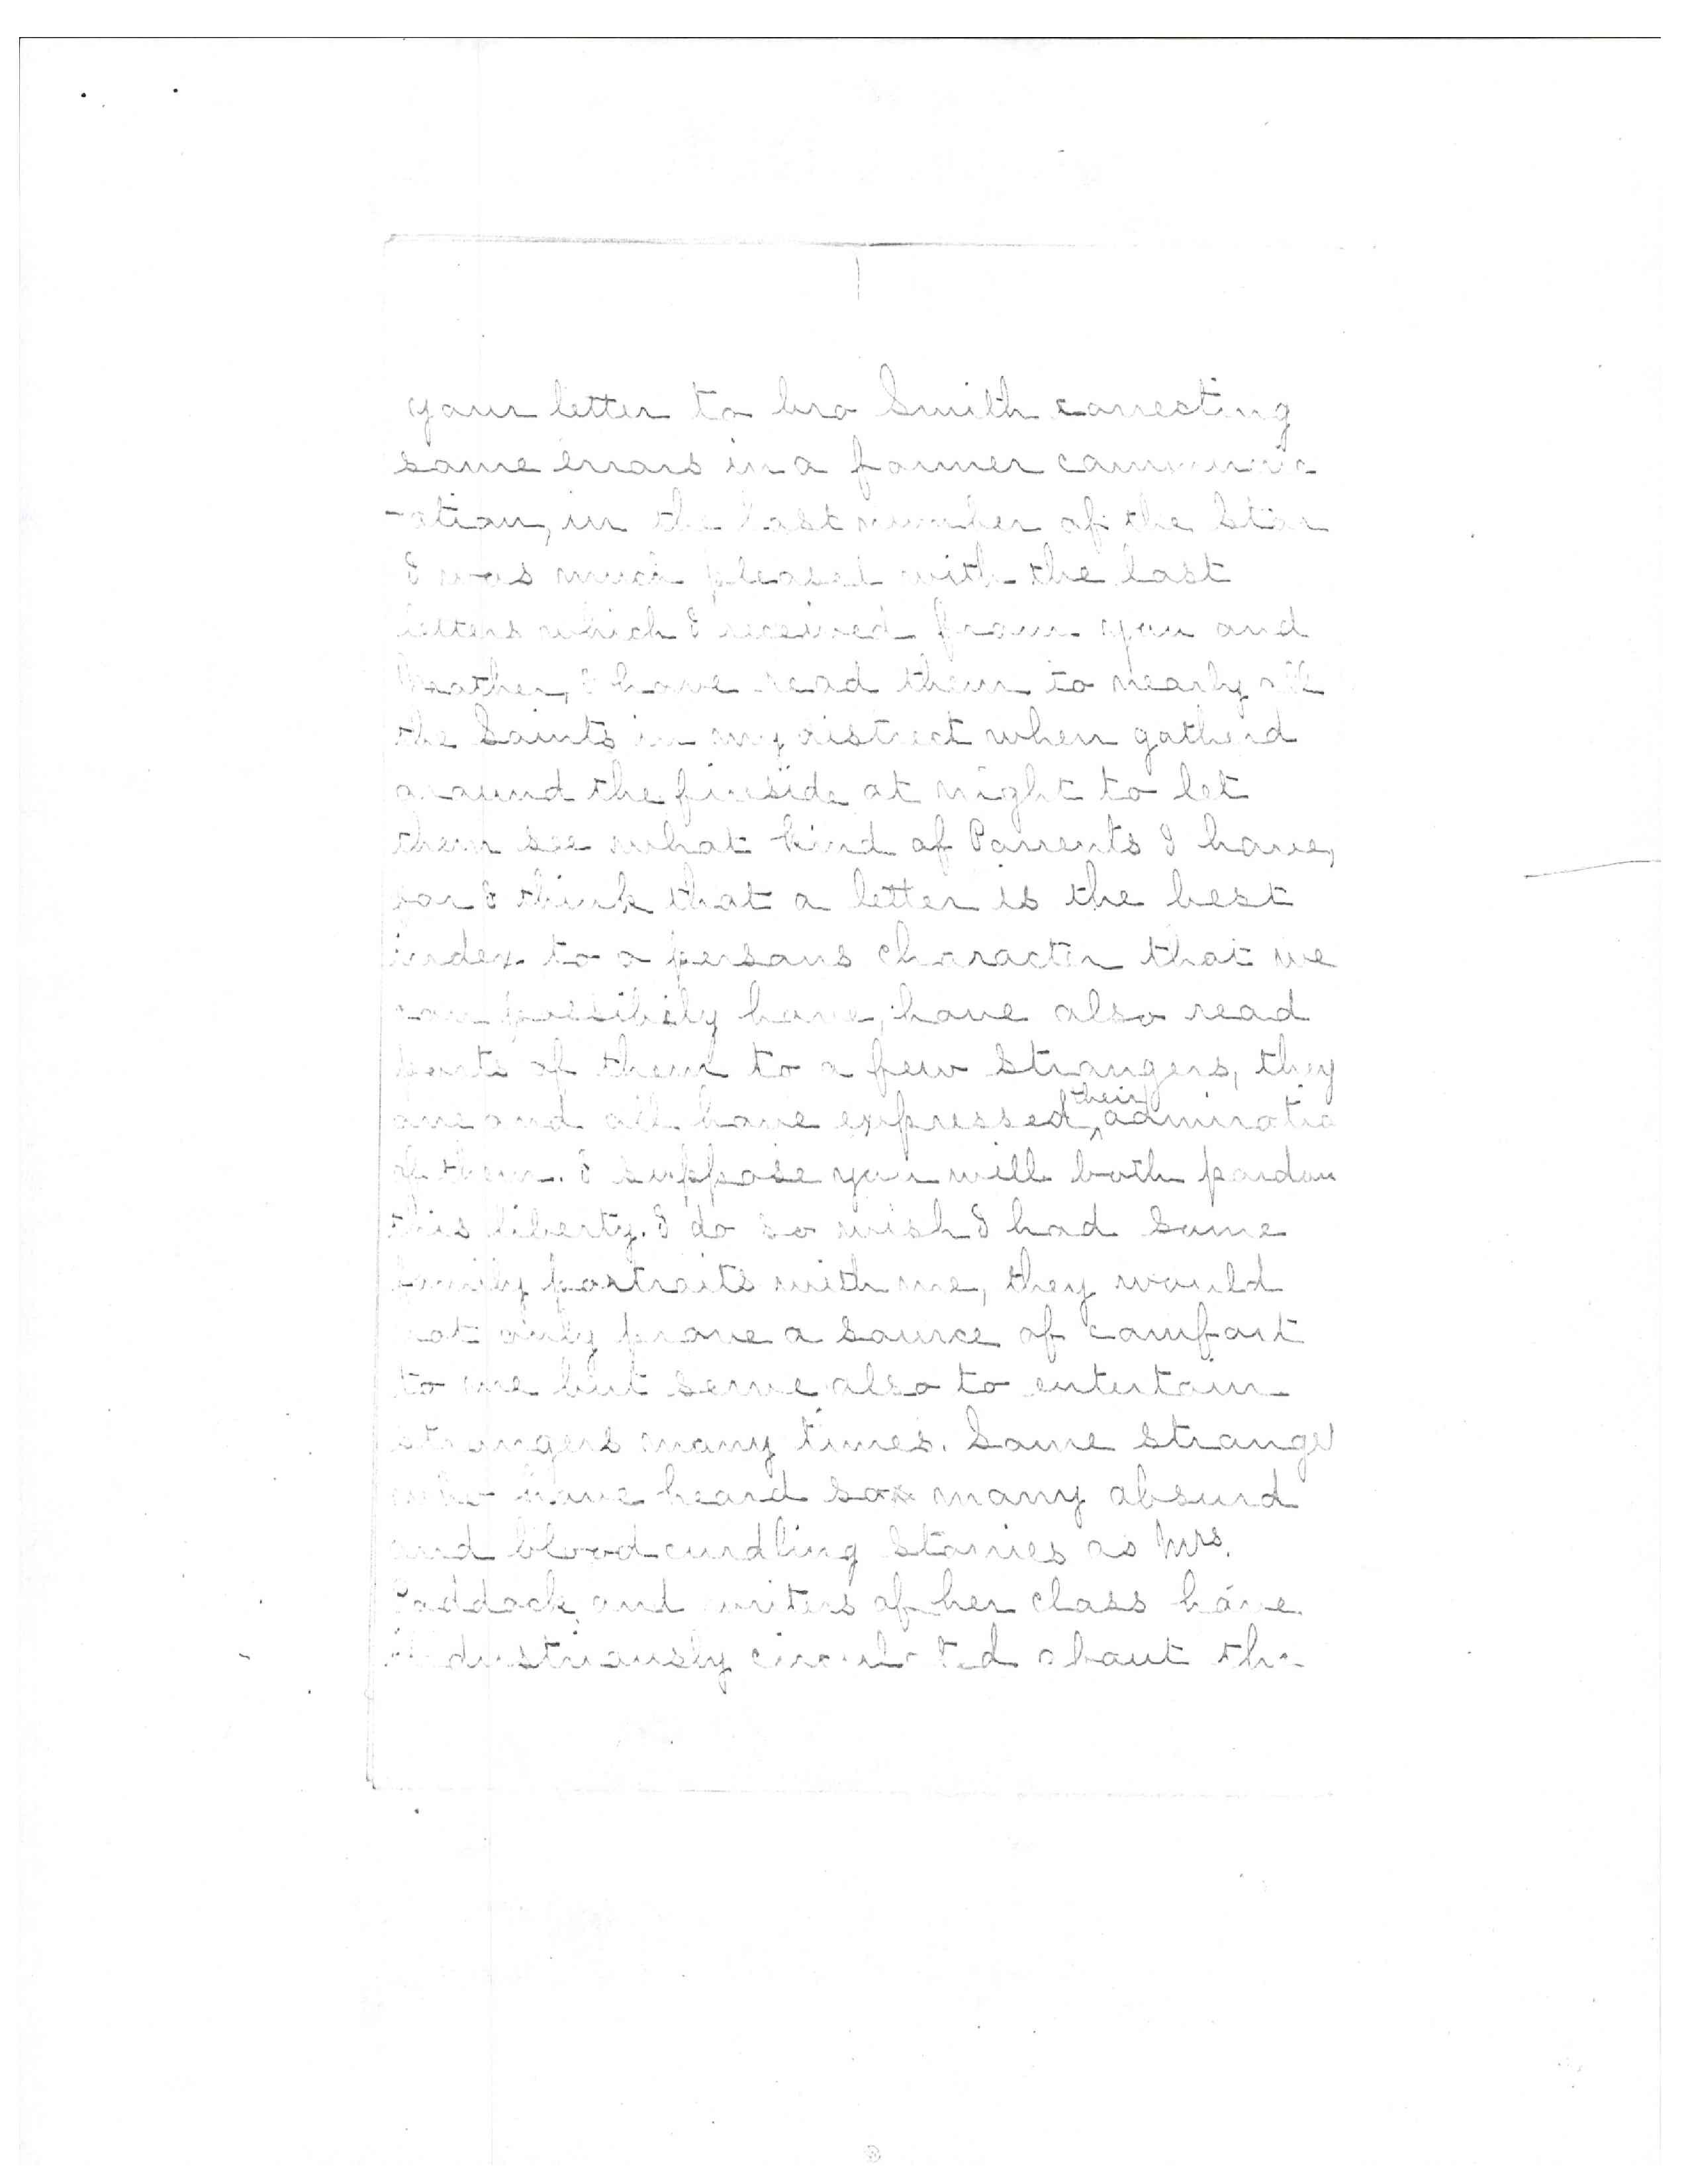 your letter to bro Smith correcting
some errors in a former communic
-ation, in the last number of the Star
I was much pleased with the last
letters which I received from you and
Mother, I have read them to nearly all
the Saints in my district when gatherd
around the fireside at night to let
them see what kind of Parrents I have,
for I think that a letter is the best
index to a persons character that we
can possibily have, have also read
parts of them to a few strangers, they
one and all have expressed their admiratio
of them. I suppose you will both pardon
this liberty. I do so wish I had some
family portraits with me, they would
not only prove a source of comfort
to me but serve also to entertain
strangers many times. Some stranger
who have heard so many absurd
and bloodcurdling storries as Mrs.
Paddock and writers of her class have
industriously circulated about the